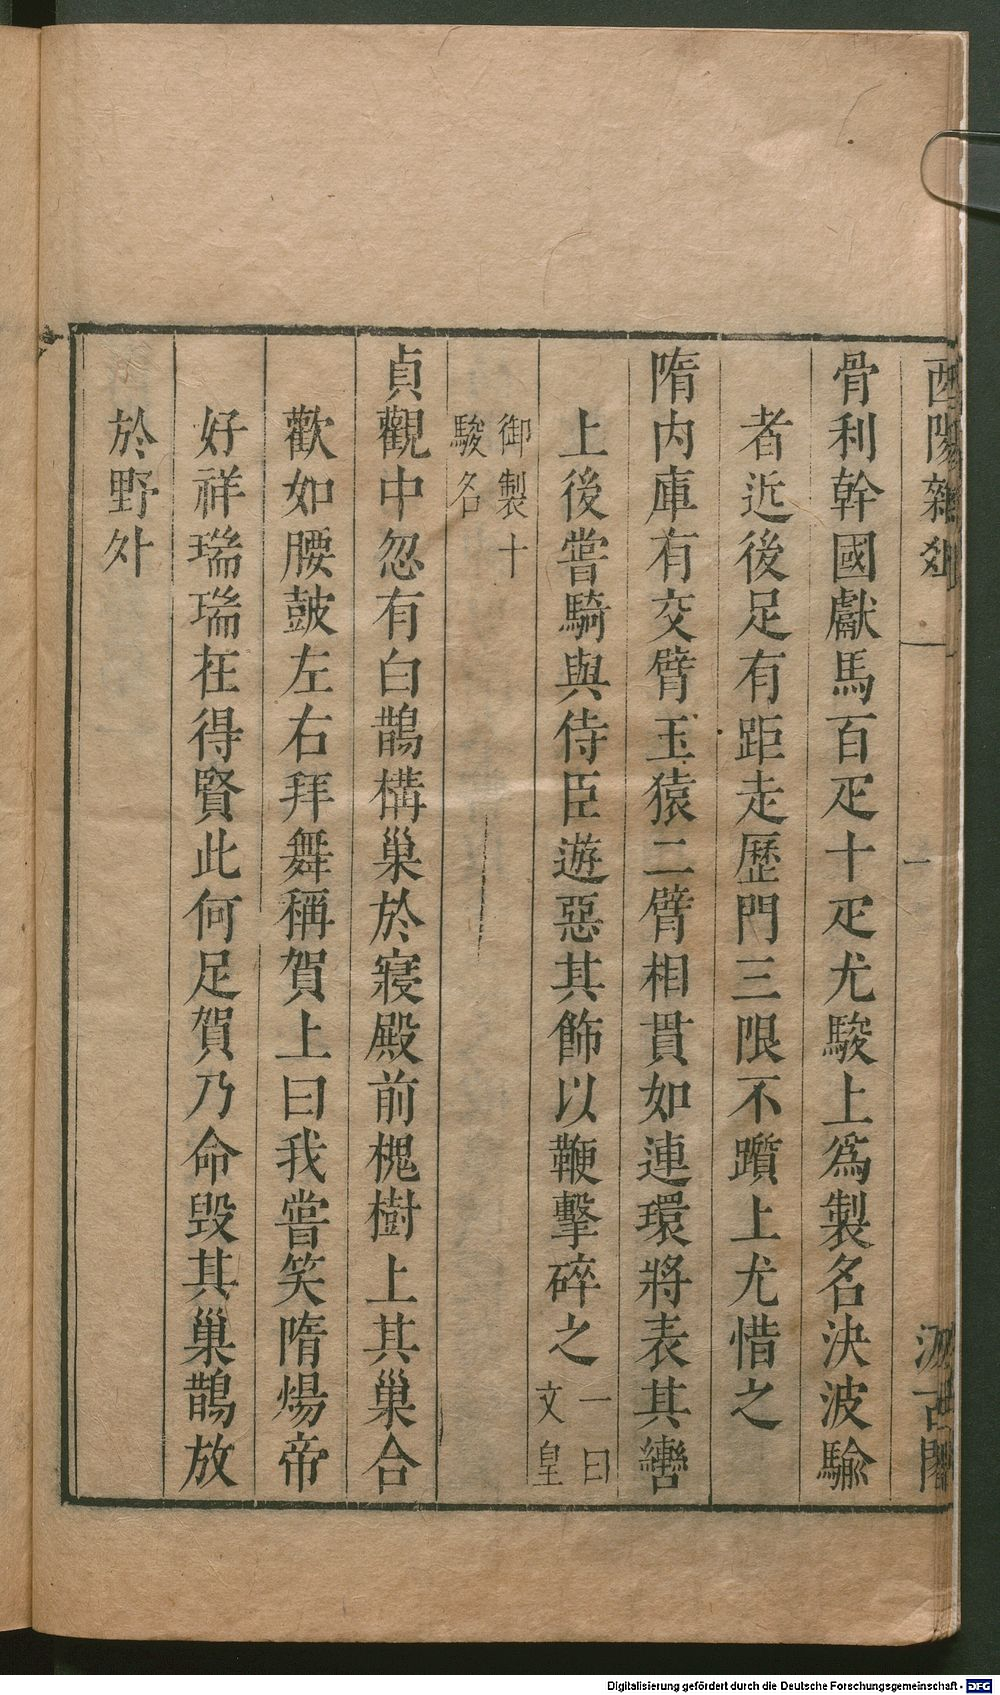 酉陽雜俎 一
汲古閣
骨利幹國獻馬百疋十疋尤駿上爲製名決波騟
者近後足有距走歷門三限不躓上尤惜之
隋内庫有交臂玉猿二臂相貫如連環將表其轡
上後嘗騎與侍臣遊惡其飾以鞭擊碎之一曰
文皇
御製十
駿名
貞觀中忽有白鵲構巢於寢殿前槐樹上其巢合
歡如腰鼓左右拜舞稱賀上曰我嘗笑隋煬帝
好祥瑞瑞在得賢此何足賀乃命毀其巢鵲放
於野外
Digitalisierung gefördert durch die Deutsche Forschungsgemeinschaft - DFG